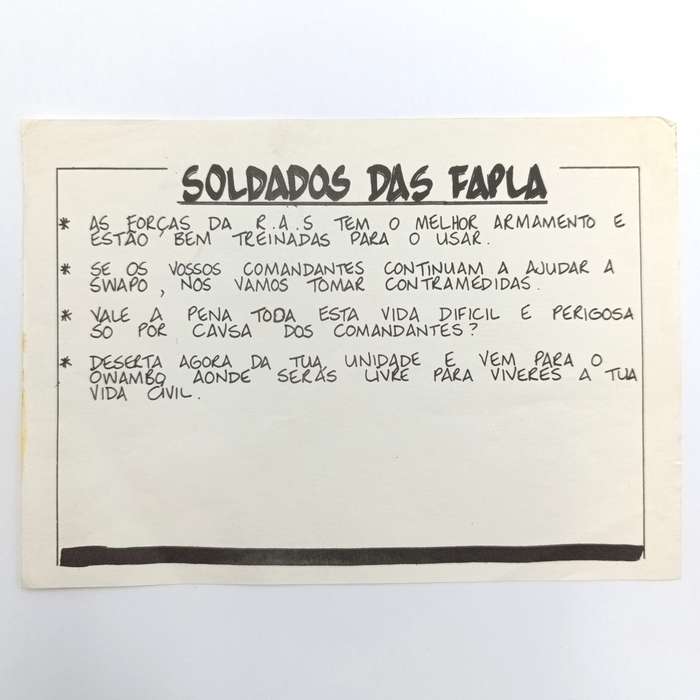 SOLDADOS DAS FAPLA
* AS FORÇAS DA R.A.S TEM O MELHOR ARMAMENTO E
ESTÃO BEM TREINADAS PARA O USAR.
* SE OS VOSSOS COMANDANTES CONTINUAM A AJUDAR A
SWAPO, NOS VAMOS TOMAR CONTRAMEDIDAS.
* VALE A PENA TODA ESTA VIDA DIFICIL E PERIGOSA
SO POR CAVSA DOS COMANDANTES?
* DESERTA AGORA DA TUA UNIDADE E VEM PARA O
OWAMBO AONDE SERÁS LIVRE PARA VIVERES A TUA
VIDA CIVIL.